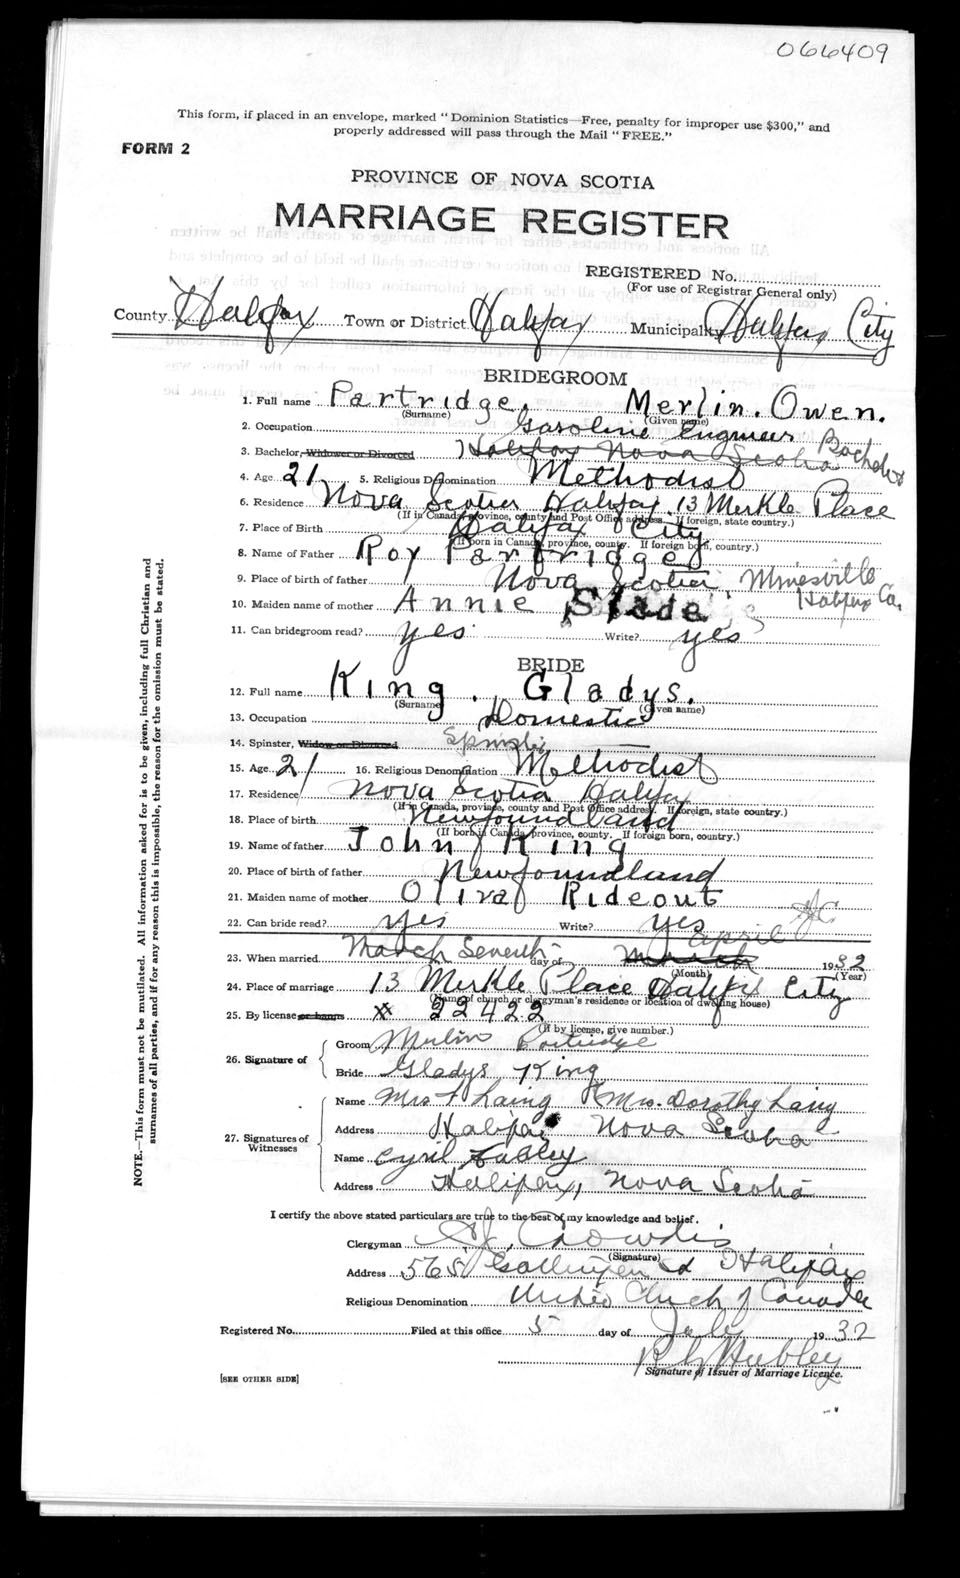 066409
This form, if placed in an envelope, marked "Dominion Statistics—Free, penalty for improper use $300," and
properly addressed will pass through the Mail "FREE."
FORM 2
PROVINCE OF NOVA SCOTIA
MARRIAGE REGISTER
REGISTERED No.
(For use of Registrar General only)
County Halifax Town or District Halifax Municipality Halifax City
BRIDEGROOM
1. Full name Partridge, Merlin. Owen.
(Surname) (Given name)
2. Occupation Gasoline Engineer
3. Bachelor, Widower or Divorced Halifax Nova Scotia Bachelor
4. Age 21 5. Religious Denomination Methodist
6. Residence Nova Scotia Halifax 13 Merkle Place
(If in Canada, province, county and Post Office address. If foreign, state country.)
7. Place of Birth Halifax City
(If born in Canada, province, county. If foreign born, country.)
8. Name of Father Roy Partridge
9. Place of birth of father Nova Scotia, Minesville
Halifax Co.
10. Maiden name of mother Annie Slade
11. Can bridegroom read? yes Write? yes
BRIDE
12. Full name King. Gladys.
(Surname) (Given name)
13. Occupation Domestic
14. Spinster, Widow or Divorced Spinster
15. Age 21 16. Religious Denomination Methodist
17. Residence Nova Scotia Halifax
(If in Canada, province, county and Post Office address. If foreign, state country.)
18. Place of birth Newfoundland
(If born in Canada, province, county. If foreign born, country.)
19. Name of father John King
20. Place of birth of father Newfoundland
21. Maiden name of mother Oliva Rideout
22. Can bride read? yes Write? yes
April
23. When married March Seventh day of March 1932
(Month) (Year)
24. Place of marriage 13 Merkle Place Halifax City
(Name of church or clergyman's residence or location of dwelling house)
25. By license or banns xx 22422
(If by license, give number.)
26. Signature of
Groom Merlin Partridge
Bride Gladys King
27. Signatures of Witnesses
Name Mrs Laing Mrs. Dorothy Laing
Address Halifax Nova Scotia
Name Cyril
Address Halifax, Nova Scotia
I certify the above stated particulars are true to the best of my knowledge and belief.
Clergyman Crowdis
(Signature)
Address 565 Gottingen St Halifax
Religious Denomination United Church of Canada
Registered No. Filed at this office 5 day of July 1932
Hubley
Signature of Issuer of Marriage Licence.
[SEE OTHER SIDE]
NOTE.—This form must not be mutilated. All information asked for is to be given, including full Christian and
surnames of all parties, and if for any reason this is impossible, the reason for the omission must be stated.